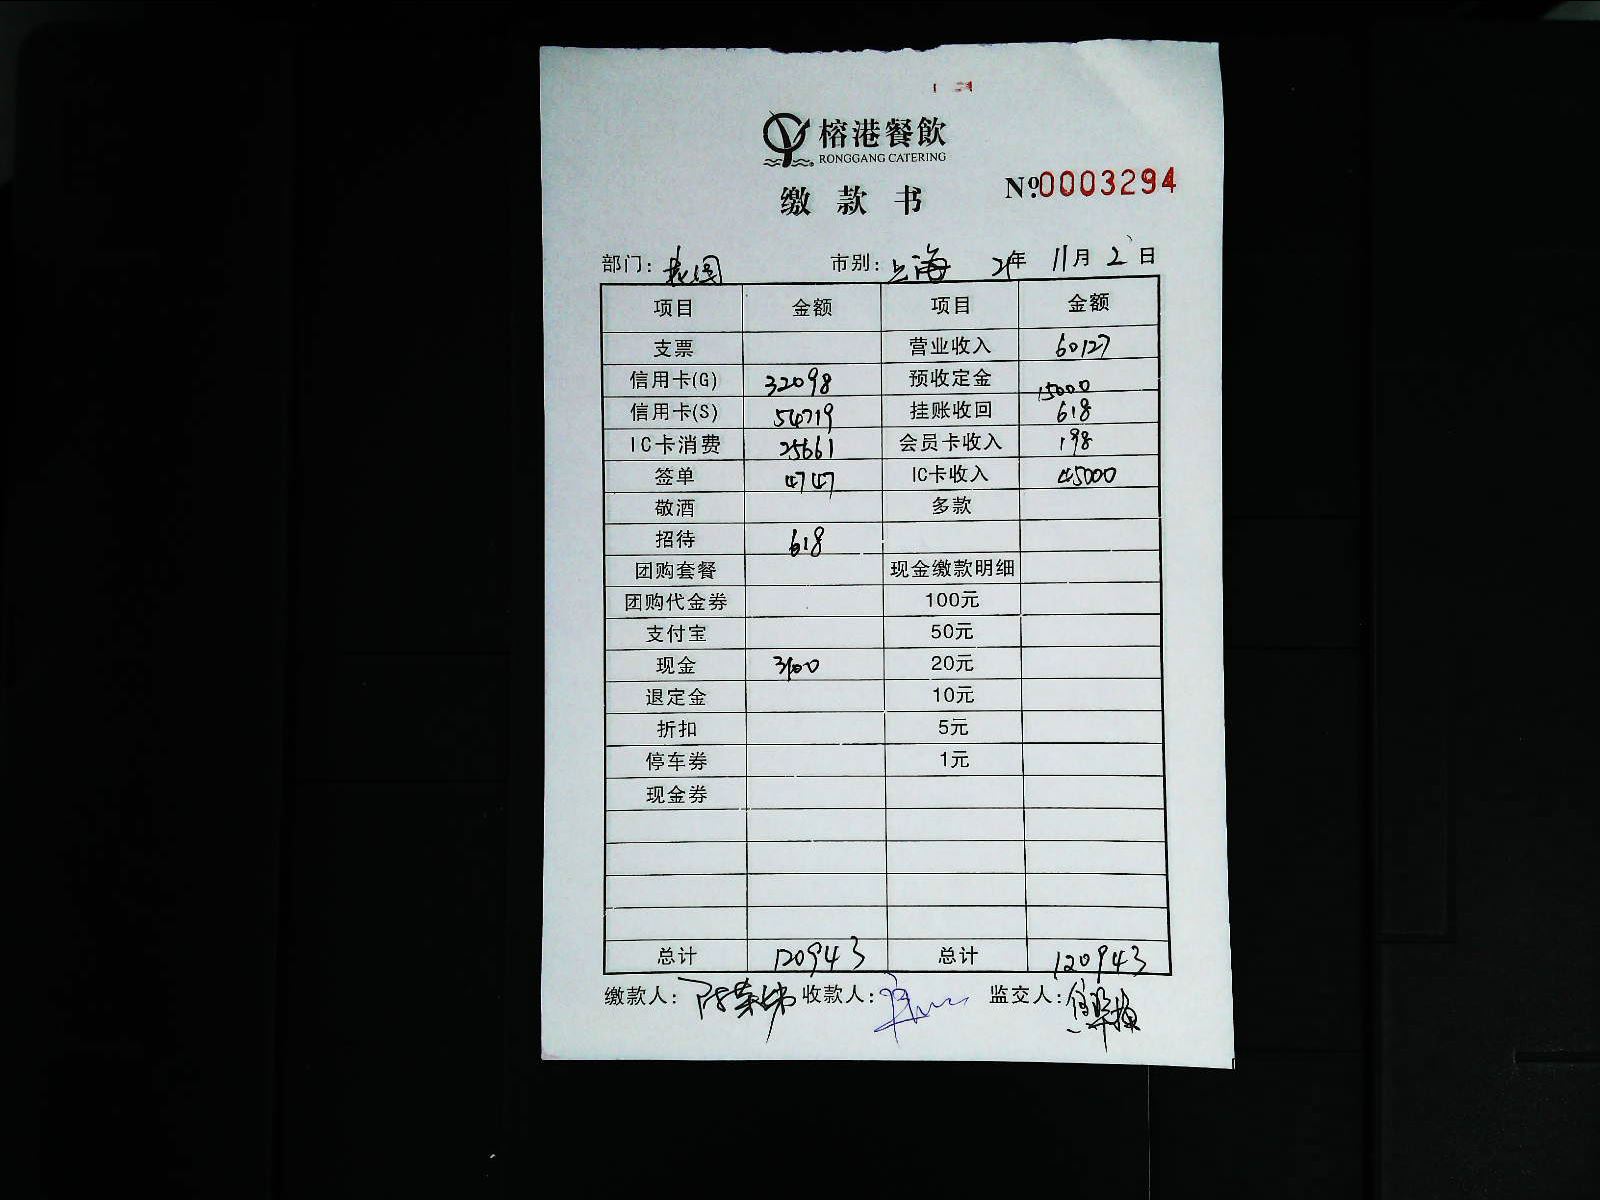 榕港餐飲
RONGGANG CATERING
缴款书
№0003294
部门: 市别: 上海 21年 11月 2日
项目 金额 项目 金额
支票 营业收入 60127
信用卡(G) 32098 预收定金 15000
信用卡(S) 54719 挂账收回 618
IC卡消费 25661 会员卡收入 198
签单 4747 IC卡收入 45000
敬酒 多款
招待 618
团购套餐 现金缴款明细
团购代金券 100元
支付宝 50元
现金 3100 20元
退定金 10元
折扣 5元
停车券 1元
现金券
总计 120943 总计 120943
缴款人: 收款人: 监交人: